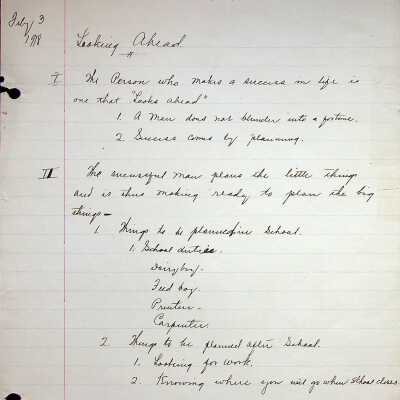 Feby, 3
1918
Looking Ahead
I The Person who makes a success in life is
one that "Looks ahead"
1. A Man does not blunder into a fortune.
2. Success comes by planning.
II The successful man plans the little things
and is thus making ready to plan the big
things —
1. Things to be planned for School.
1. School duties.
Dairy boy.
Feed boy.
Printer —
Carpenter.
2. Things to be planned after School.
1. Looking for work.
2. Knowing where you will go when school closes.